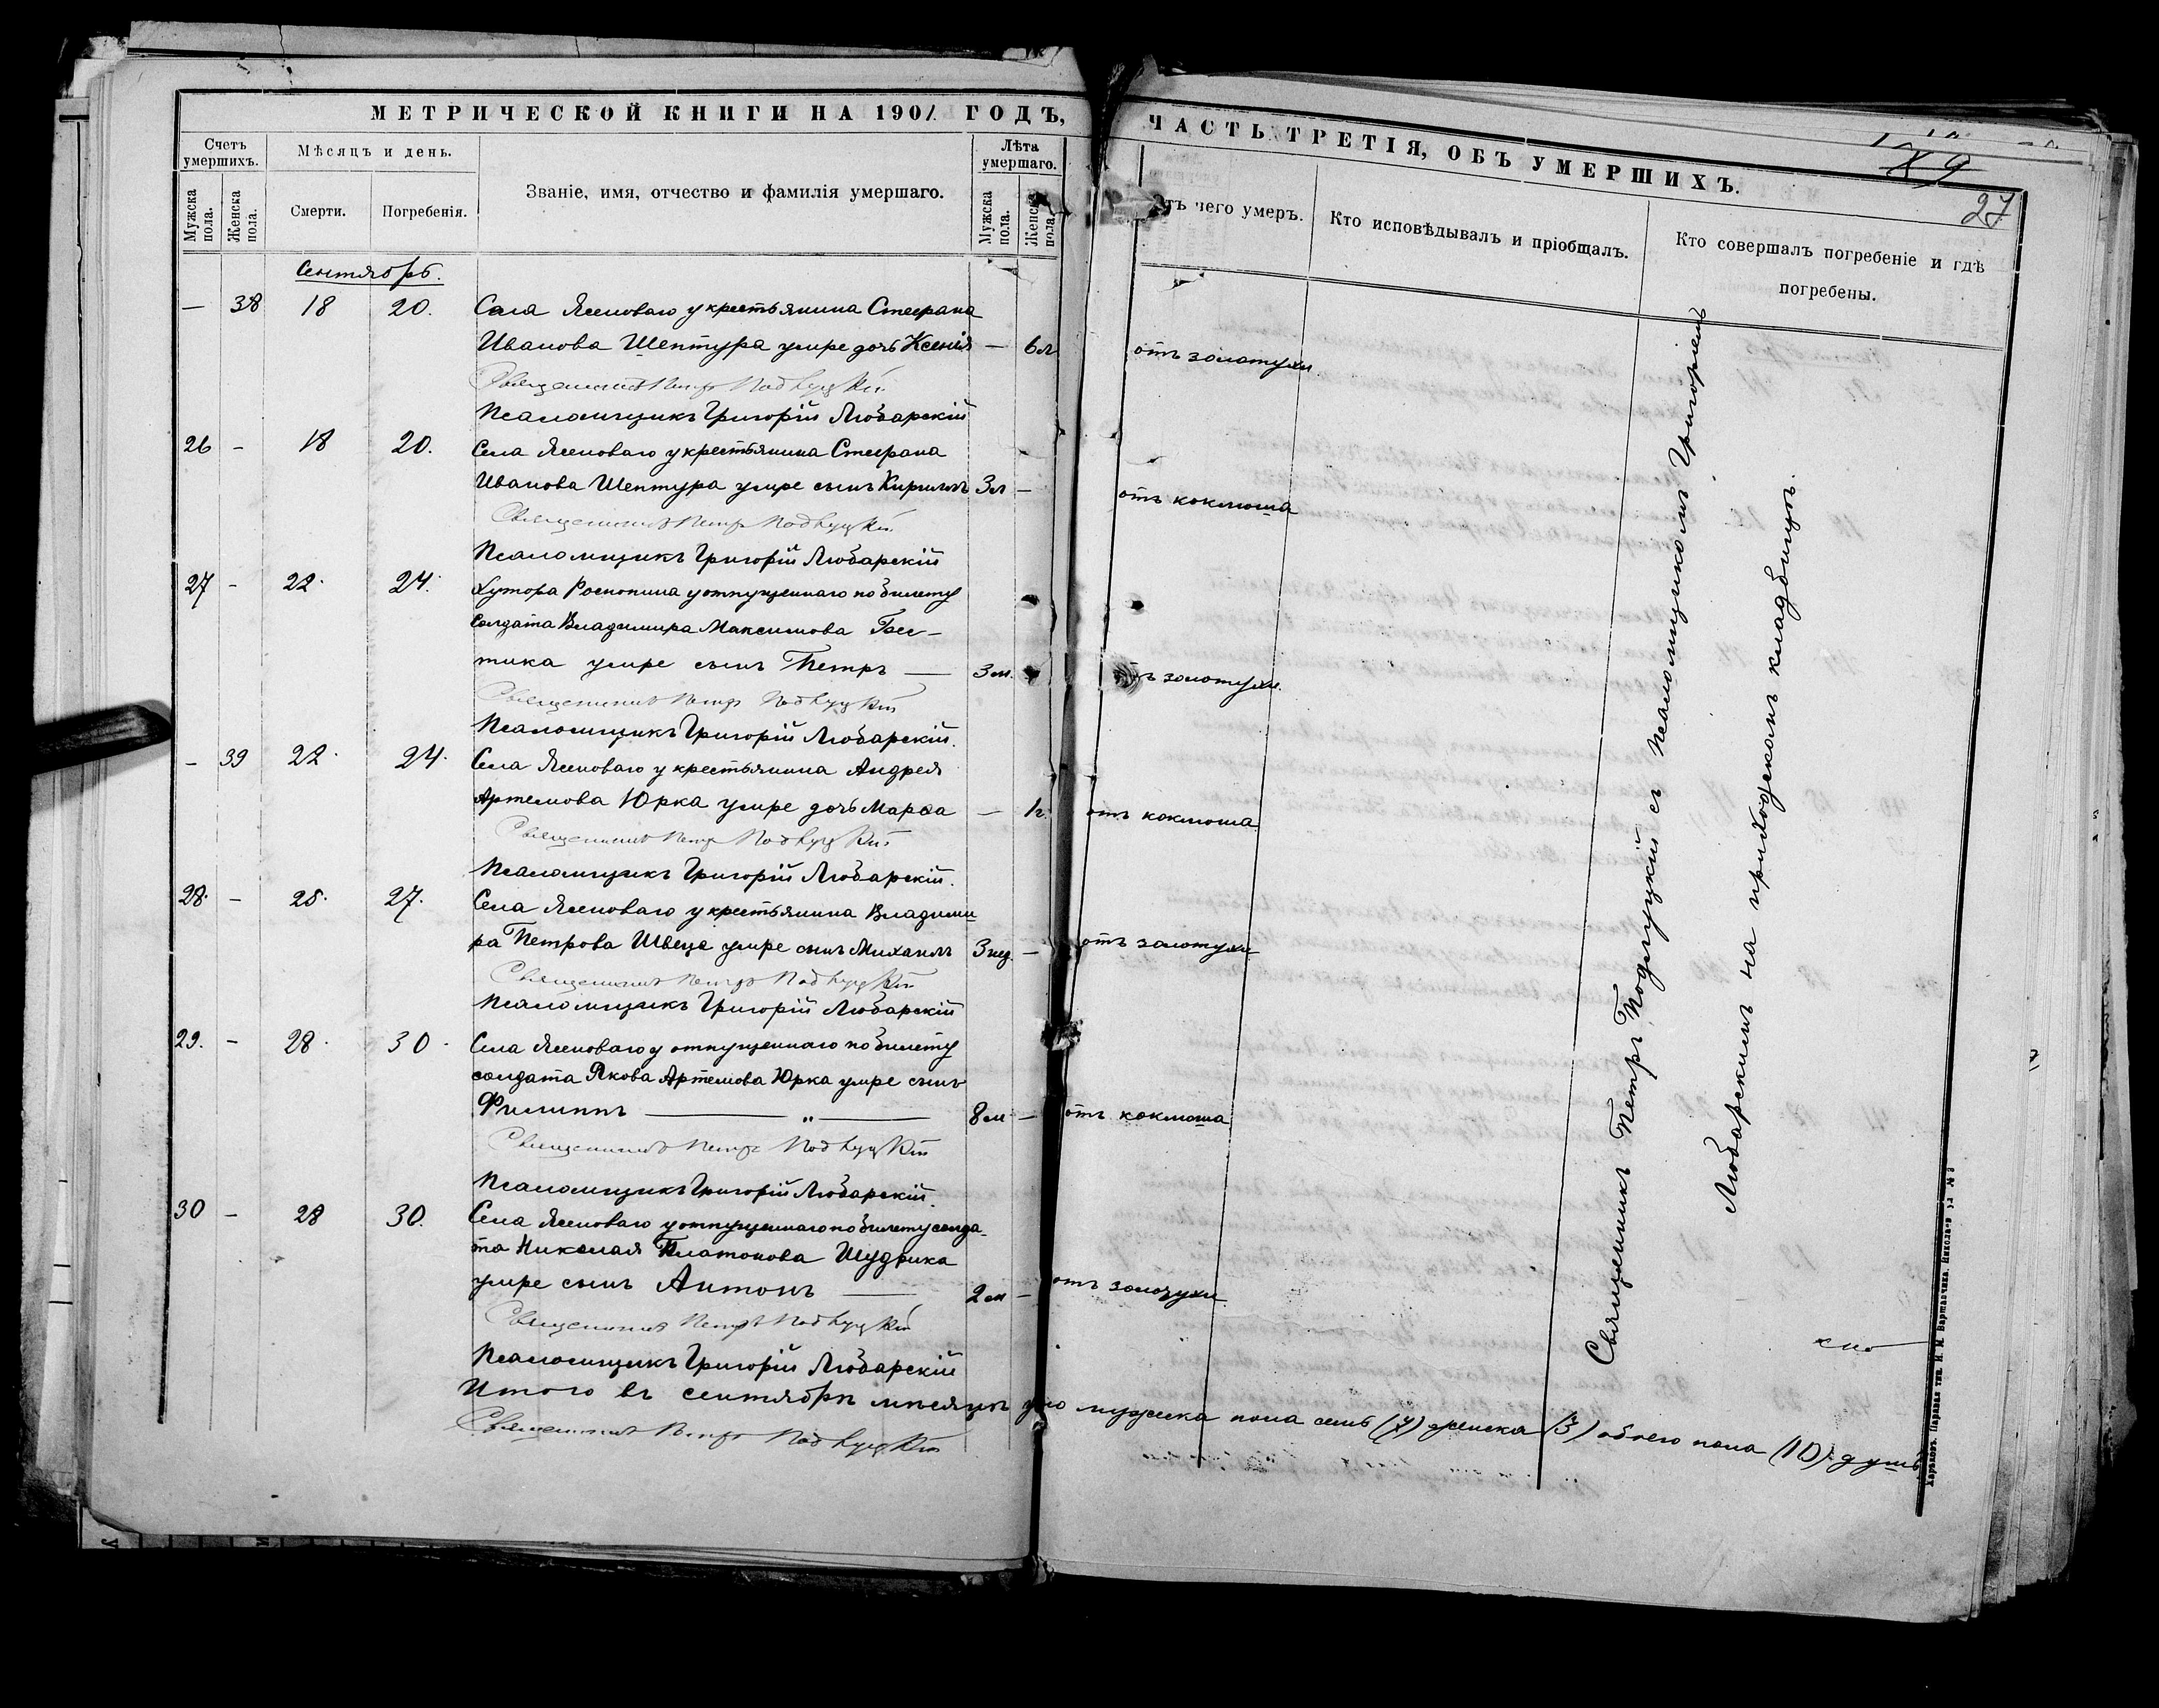 МЕТРИЧЕСКОЙ КНИГИ НА 1901 ГОДЪ,
Счетъ умершихъ.
Мѣсяцъ и день.
Званіе, имя, отчество и фамилія умершаго.
Лѣта умершаго.
Мужска пола.
Женска пола.
Смерти.
Погребенія.
Мужска пола.
Женска пола.
Сентябрь.
— 38 18 20. Села Ясеноваго у крестьянина Стефана
Иванова Шептура умре дочь Ксенія — 6 л
Священникъ Петръ Подлуцкій
Псаломщикъ Григорій Любарскій
26 — 18 20. Села Ясеноваго у крестьянина Стефана
Иванова Шептура умре сынъ Кириллъ 3 л —
Священникъ Петръ Подлуцкій
Псаломщикъ Григорій Любарскій
27 — 22. 24. Хутора у отпущеннаго по билету
солдата Владимира Максимова
тика умре сынъ Петръ — 3 м.
Священникъ Петръ Подлуцкій
Псаломщикъ Григорій Любарскій.
— 39 22. 24. Села Ясеноваго у крестьянина Андрея
Артемова Юрка умре дочь Марѳа — 1 г.
Священникъ Петръ Подлуцкій
Псаломщикъ Григорій Любарскій.
28. — 25. 27. Села Ясеноваго у крестьянина Владими-
ра Петрова Швеца умре сынъ Михаилъ 3 нед. —
Священникъ Петръ Подлуцкій
Псаломщикъ Григорій Любарскій
29. — 28. 30. Села Ясеноваго у отпущеннаго по билету
солдата Якова Артемова Юрка умре сынъ
Филиппъ — „ — 8 м —
Священникъ Петръ Подлуцкій
Псаломщикъ Григорій Любарскій.
30 — 28 30. Села Ясеноваго у отпущеннаго по билету солда-
та Николая Платонова Шудрика
умре сынъ Антонъ — 2 м —
Священникъ Петръ Подлуцкій
Псаломщикъ Григорій Любарскій
Итого въ сентябрѣ мѣсяцѣ умо мужска пола семь (7) женска (3) обоего пола (10) душъ
Священникъ Петръ Подлуцкій
ЧАСТЬ ТРЕТІЯ, ОБЪ УМЕРШИХЪ.
27
тъ чего умеръ.
Кто исповѣдывалъ и пріобщалъ.
Кто совершалъ погребеніе и гдѣ
погребены.
отъ золотухи.
отъ коклюша
тъ золотухи.
отъ коклюша
отъ золотухи
отъ коклюша
отъ золотухи.
Священникъ Петръ Подлуцкій съ псаломщикомъ Григоріемъ
Любарскимъ на приходскомъ кладбищѣ.
Харьковъ. Паровая тип. И. М. Варшавчика. Николаев. ул. №